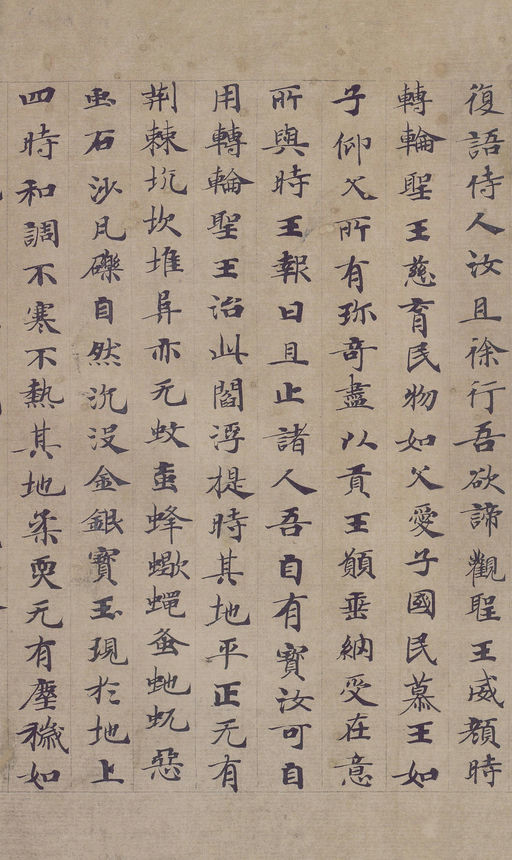 復語侍人汝且徐行吾欲諦觀聖王威顏時
轉輪聖王慈育民物如父愛子國民慕王如
子仰父所有珎奇盡以貢王願垂納受在意
所與時王報曰且止諸人吾自有寶汝可自
用轉輪聖王治此閻浮提時其地平正无有
荆棘坑坎堆阜亦无蚊虻蜂蠍蠅蚤虵蚖惡
虫石沙瓦礫自然沉没金銀寶玉現於地上
四時和調不寒不熱其地柔耎无有塵穢如